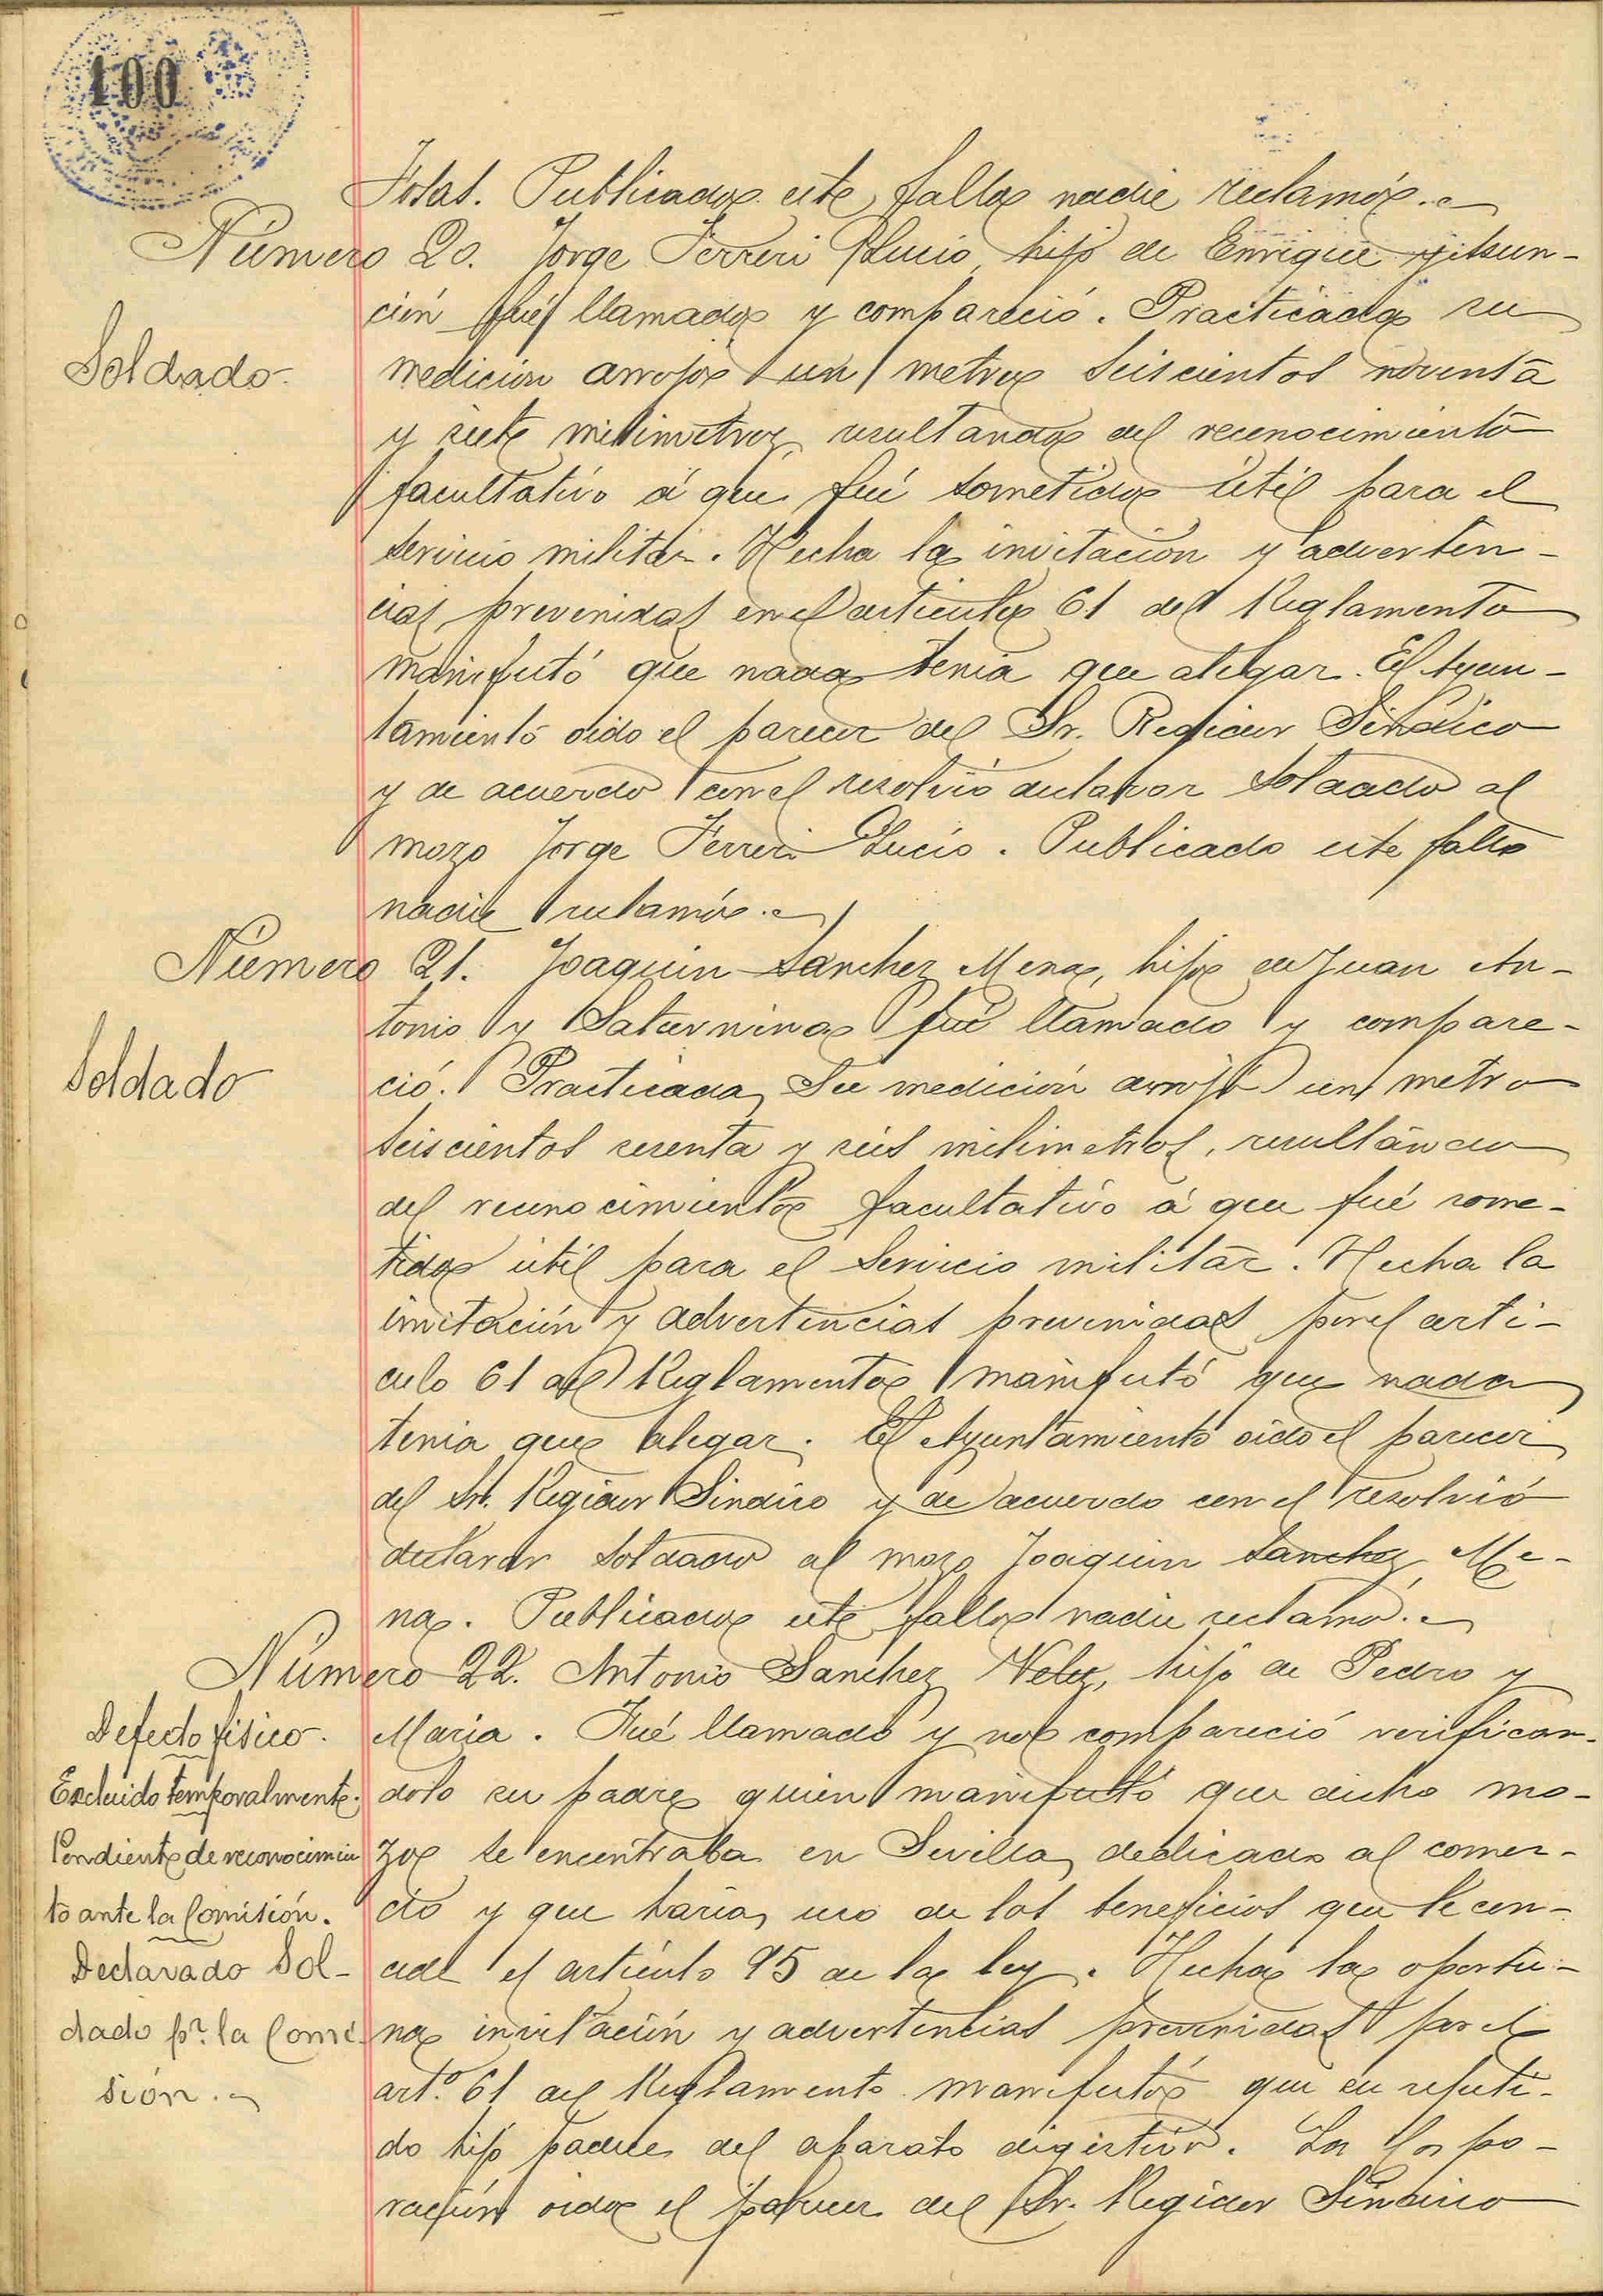 100
Total. Publicado este fallo nadie reclamó.
Número 20. Jorge Ferreri Lucio hijo de Enrique y Asun-
ción fué llamado y compareció. Practicada su
Soldado.
medición arrojó un metro seiscientos noventa
y siete milimetros resultando del reconocimiento
facultativo á que fué sometido útil para el
servicio militar. Hecha la invitación y adverten-
cias prevenidas en el articulo 61 del Reglamento
manifestó que nada tenia que alegar. El Ayun-
tamiento oido el parecer del Sr. Regidor Sindico
y de acuerdo con el resolvió declarar Soldado al
mozo Jorge Ferreri Lucio. Publicado este fallo
nadie reclamó.
Número 21. Joaquin Sanchez Mena, hijo de Juan An-
tonio y Saturnina fué llamado y compare-
Soldado
ció. Practicada su medición arrojó un metro
seiscientos sesenta y seis milimetros, resultando
del reconocimiento facultativo á que fué some-
tido útil para el servicio militar. Hecha la
invitación y advertencias prevenidas por el arti-
culo 61 del Reglamento manifestó que nada
tenia que alegar. El Ayuntamiento oido el parecer
del Sr. Regidor Sindico y de acuerdo con el resolvió
declarar Soldado al mozo Joaquin Sanchez Me-
na. Publicado este fallo nadie reclamó.
Número 22. Antonio Sanchez Velez, hijo de Pedro y
Defecto fisico.
Maria. Fué llamado y no compareció verifican-
Excluido temporalmente.
dolo su padre quien manifestó que dicho mo-
Pendiente de reconocimien
zo se encontraba en Sevilla dedicado al comer-
to ante la Comisión.
cio y que haria uso de los beneficios que le con-
Declarado Sol-
cede el articulo 95 de la ley. Hecha la oportu-
dado pr. la Comi-
na invitación y advertencias prevenidas por el
sión.
art.º 61 del Reglamento manifestó que su referi-
do hijo padece del aparato digestivo. La Corpo-
ración oido el parecer del Sr. Regidor Sindico